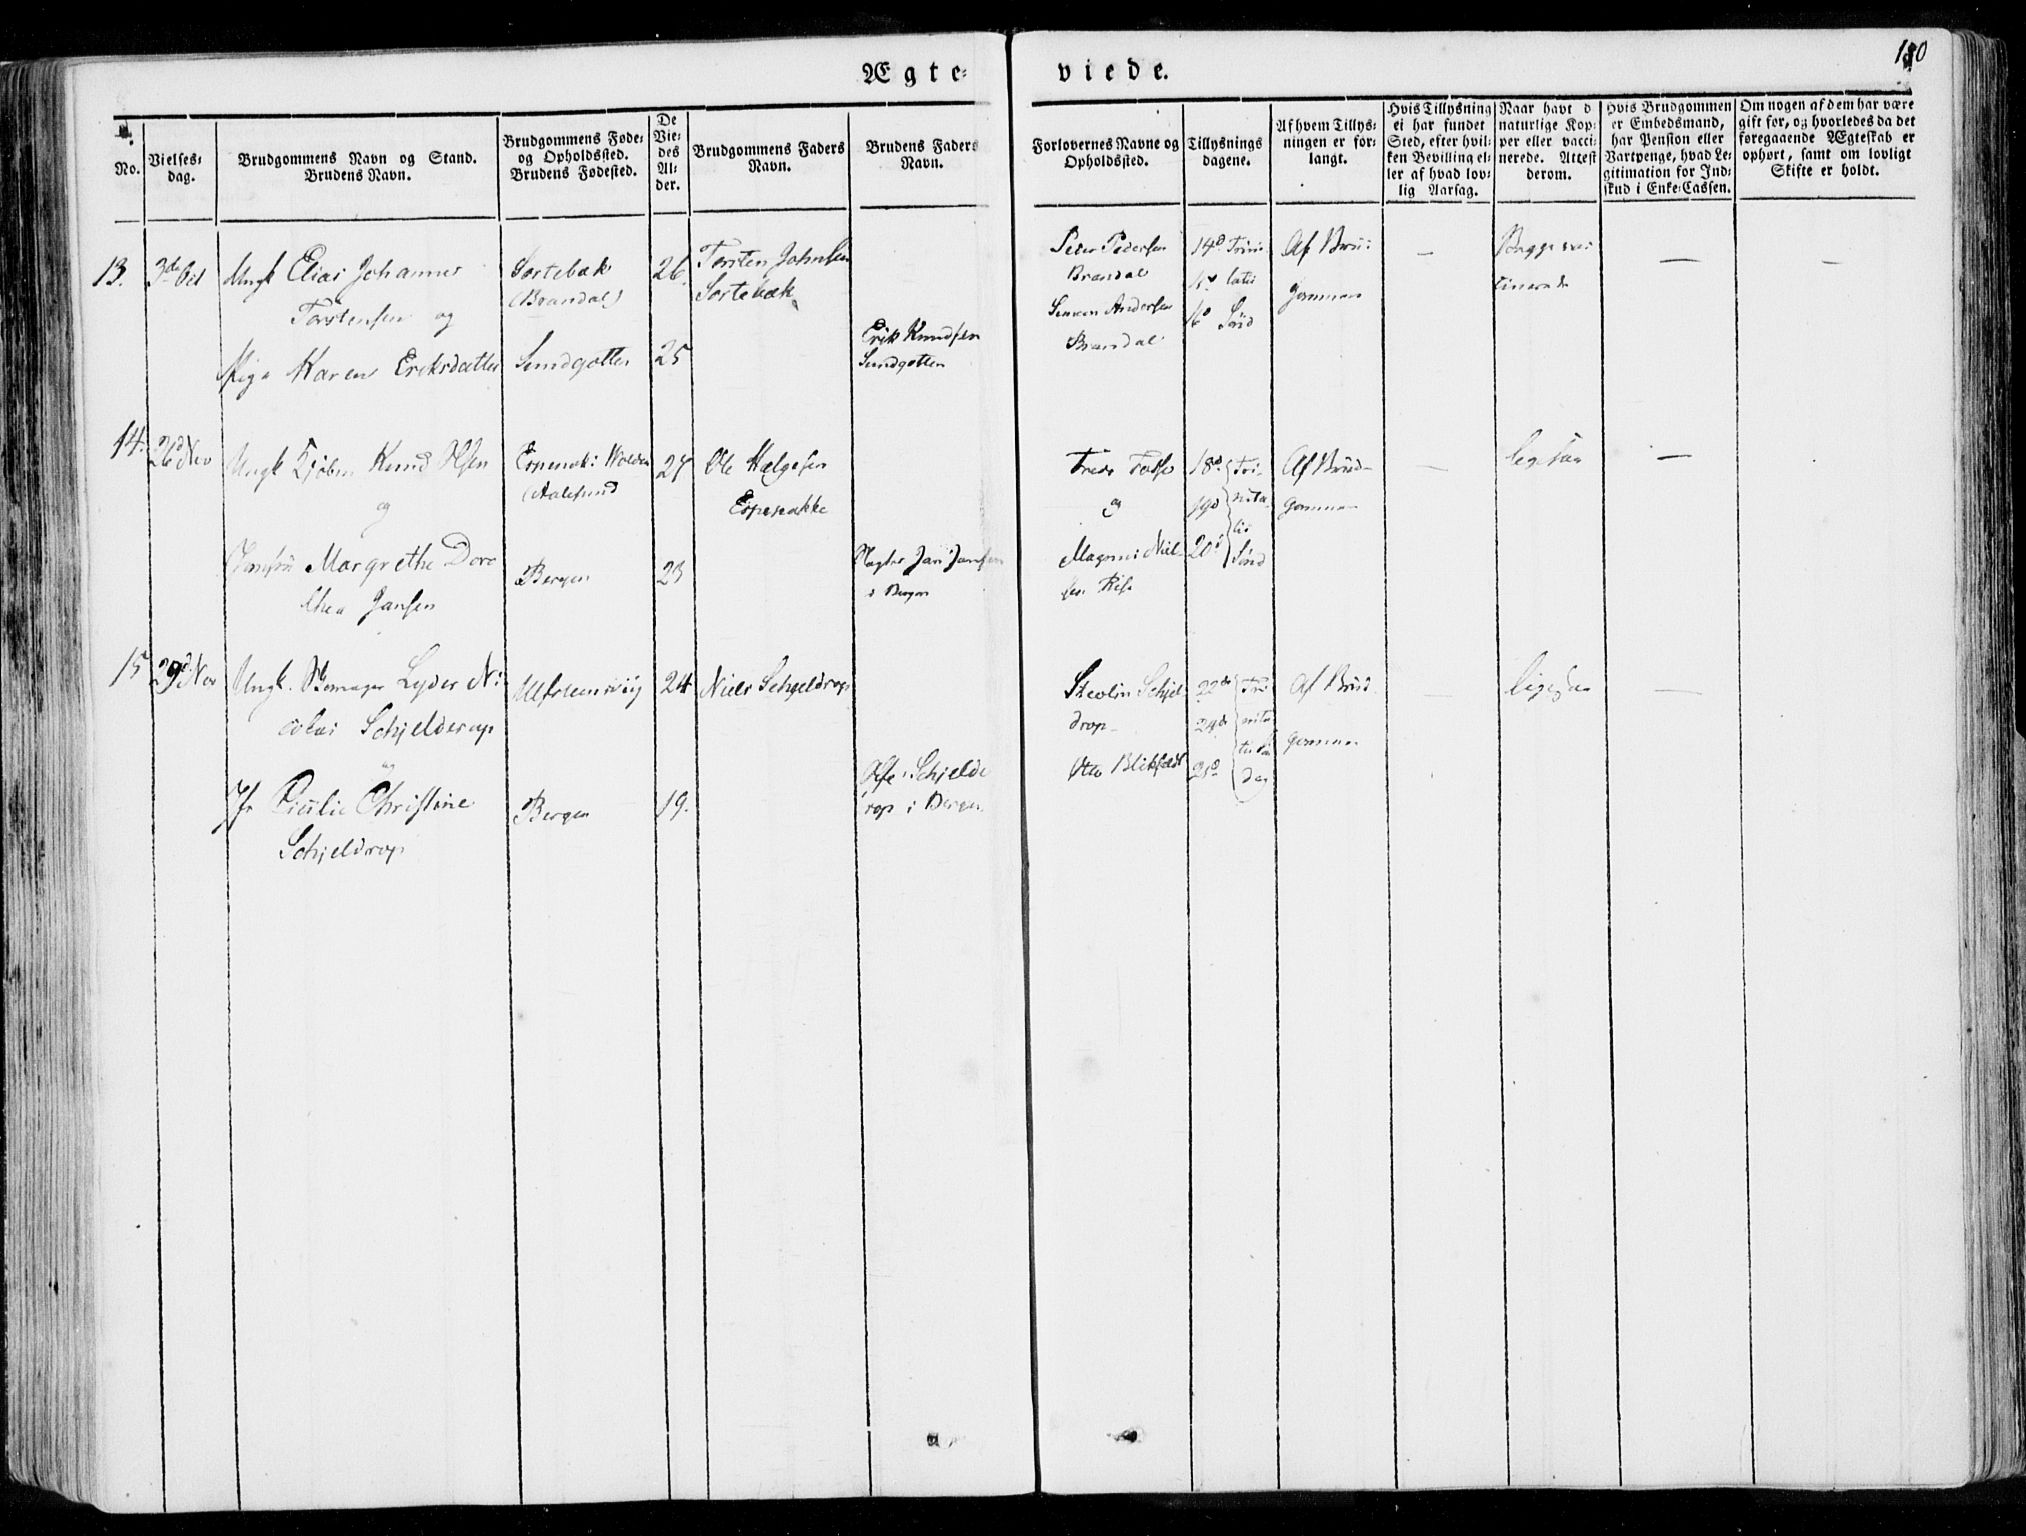 180
Ægte-
viede.
No.
Vielses-
dag.
Brudgommens Navn og Stand.
Brudens Navn.
Brudgommens Føde-
og Opholdssted.
Brudens Fødested.
De
Vie-
des
Al-
der.
Brudgommens Faders
Navn.
Brudens Faders
Navn.
Forlovernes Navne og
Opholdssted.
Tillysnings
dagene.
Af hvem Tillys-
ningen er for-
langt.
Hvis Tillysning
ei har fundet
Sted, efter hvil-
ken Bevilling el-
ler af hvad lov-
lig Aarsag.
Naar havt d
naturlige Kop-
per eller vacci-
nerede. Attest
derom.
Hvis Brudgommen
er Embedsmand,
har Pension eller
Vartpenge, hvad Le-
gitimation for Ind-
skud i Enke-Cassen.
Om nogen af dem har være
gift før, og hvorledes da det
foregaaende Ægteskab er
ophørt, samt om lovligt
Skifte er holdt.
13.
3de Oct
Ungk Elias Johannes
Torstensen og
Pige Karen Eriksdatter
Sortebæk
(Brandal)
Sundgotten
26
25
Torsten Johnsen
Sortebæk
Erik Knudsen
Sundgotten
Peter Pedersen
Brandal
Simon Andersen
Brandal
14d Trini
15d tatis
16d Sønd
Af Brud-
gommen
—
Begge vac
cinerede
—
—
14.
26d Nov
Ungk Kjøbm Knud Olsen
og
Jomfru Margrethe Doro
thea Jansen
Espenæk i Wolden
(Aalesund
Bergen
27
23
Ole Helgesen
Espenække
Jan Jansen
i Bergen
og
18d Tri-
19d nita-
tis
20d Sønd
Af Brud-
gommen
—
ligesaa
—
15
29d Nov
Ungk. Lyder Ni
colai Schjelderup
og
Jfr Christine
Schjeldrop
Bergen
24
19.
Niels Schjeldrop
Schjelde
rop i Bergen
Schjel
drop
Otto Blikfeldt
22de Tri
24de nita
25d
dag
Af Brud
gommen
—
ligesaa
—